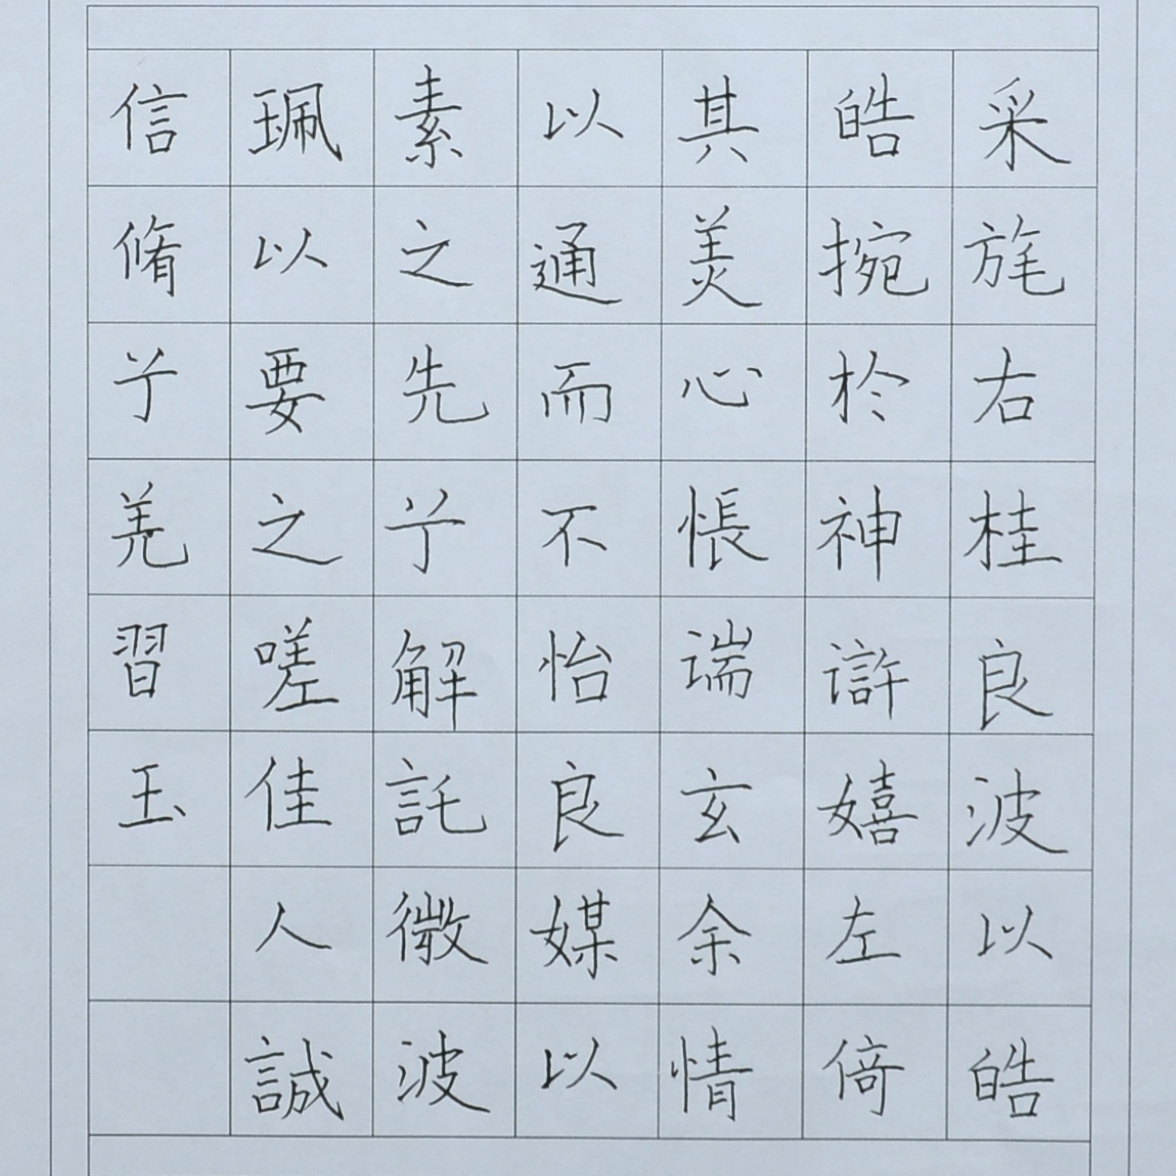 采旄右桂良波以皓
皓捥於神滸嬉左倚
其美心悵湍玄余情
以通而不怡良媒以
素之先兮解託微波
珮以要之嗟佳人誠
信脩兮羌習玉